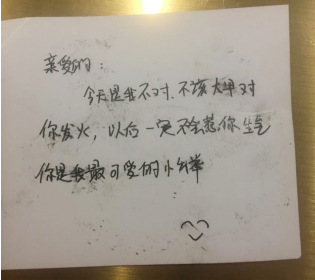 亲爱的:
今天是我不对.不该大早对
你发火,以后一定不会惹你生气
你是我最可爱的小